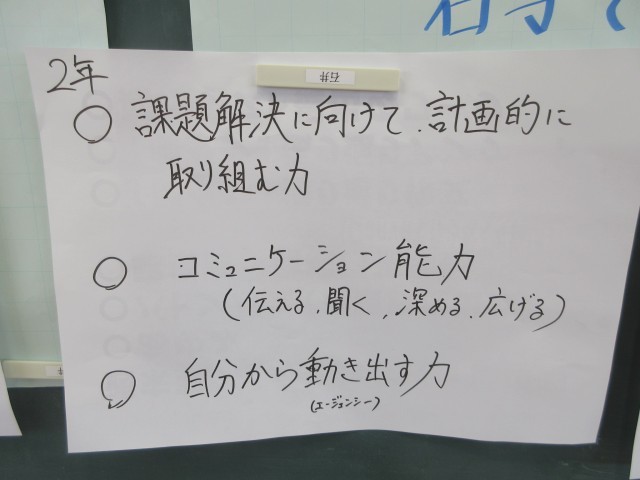 2年
○ 課題解決に向けて、計画的に
取り組む力
○ コミュニケーション能力
(伝える、聞く、深める、広げる)
○ 自分から動き出す力
(エージェンシー)
石井